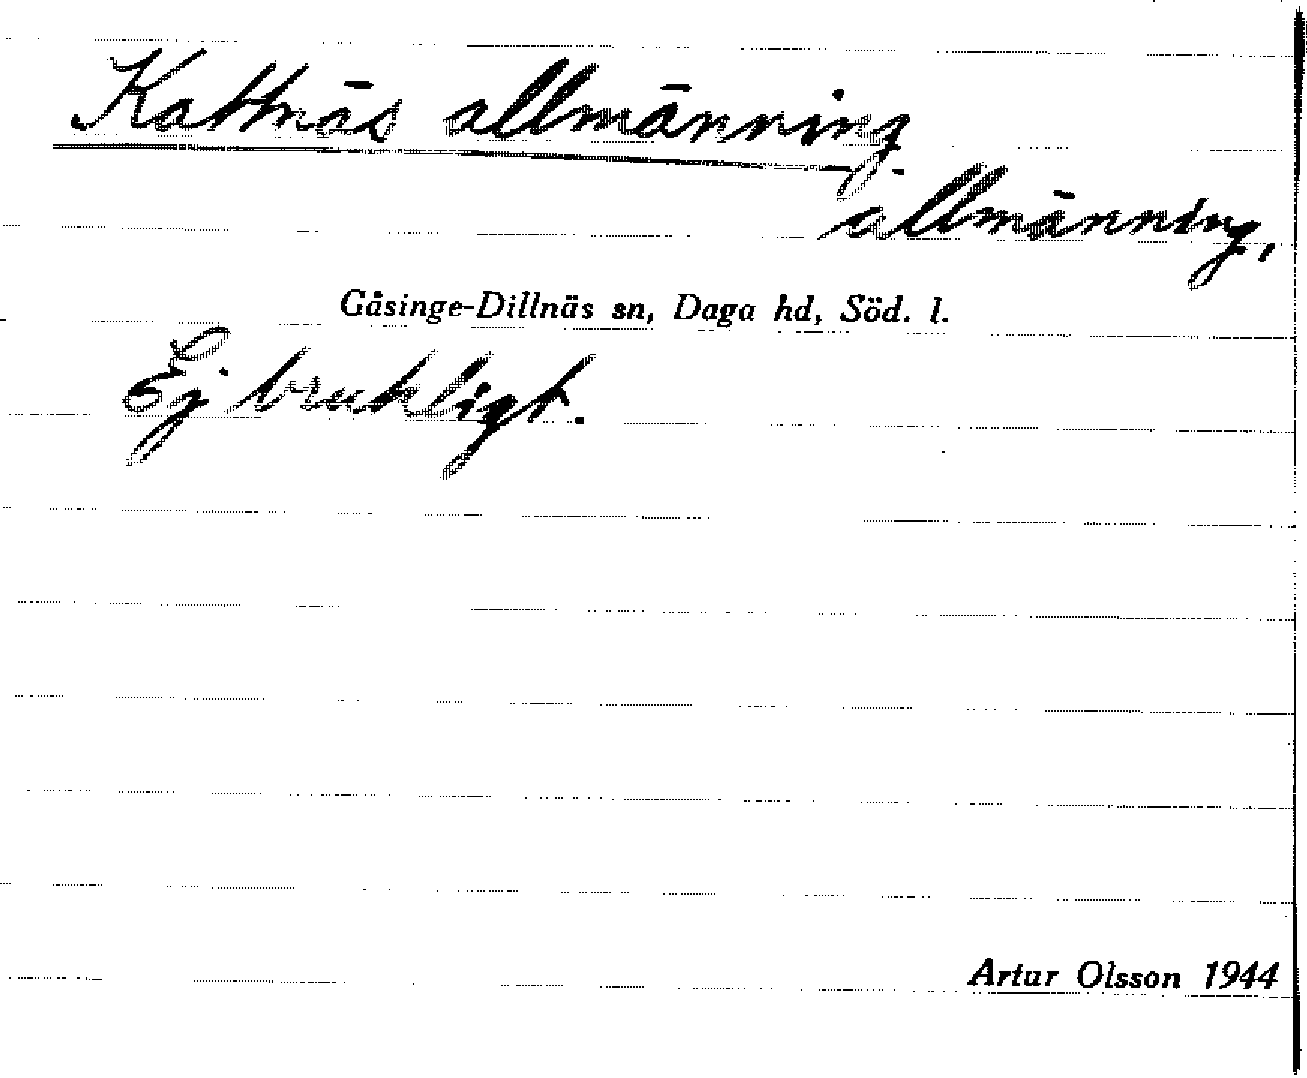 Kattnäs allmänning.
allmänning,
Gåsinge-Dillnäs sn, Daga hd, Söd. l.
Ej brukligt.
Artur Olsson 1944